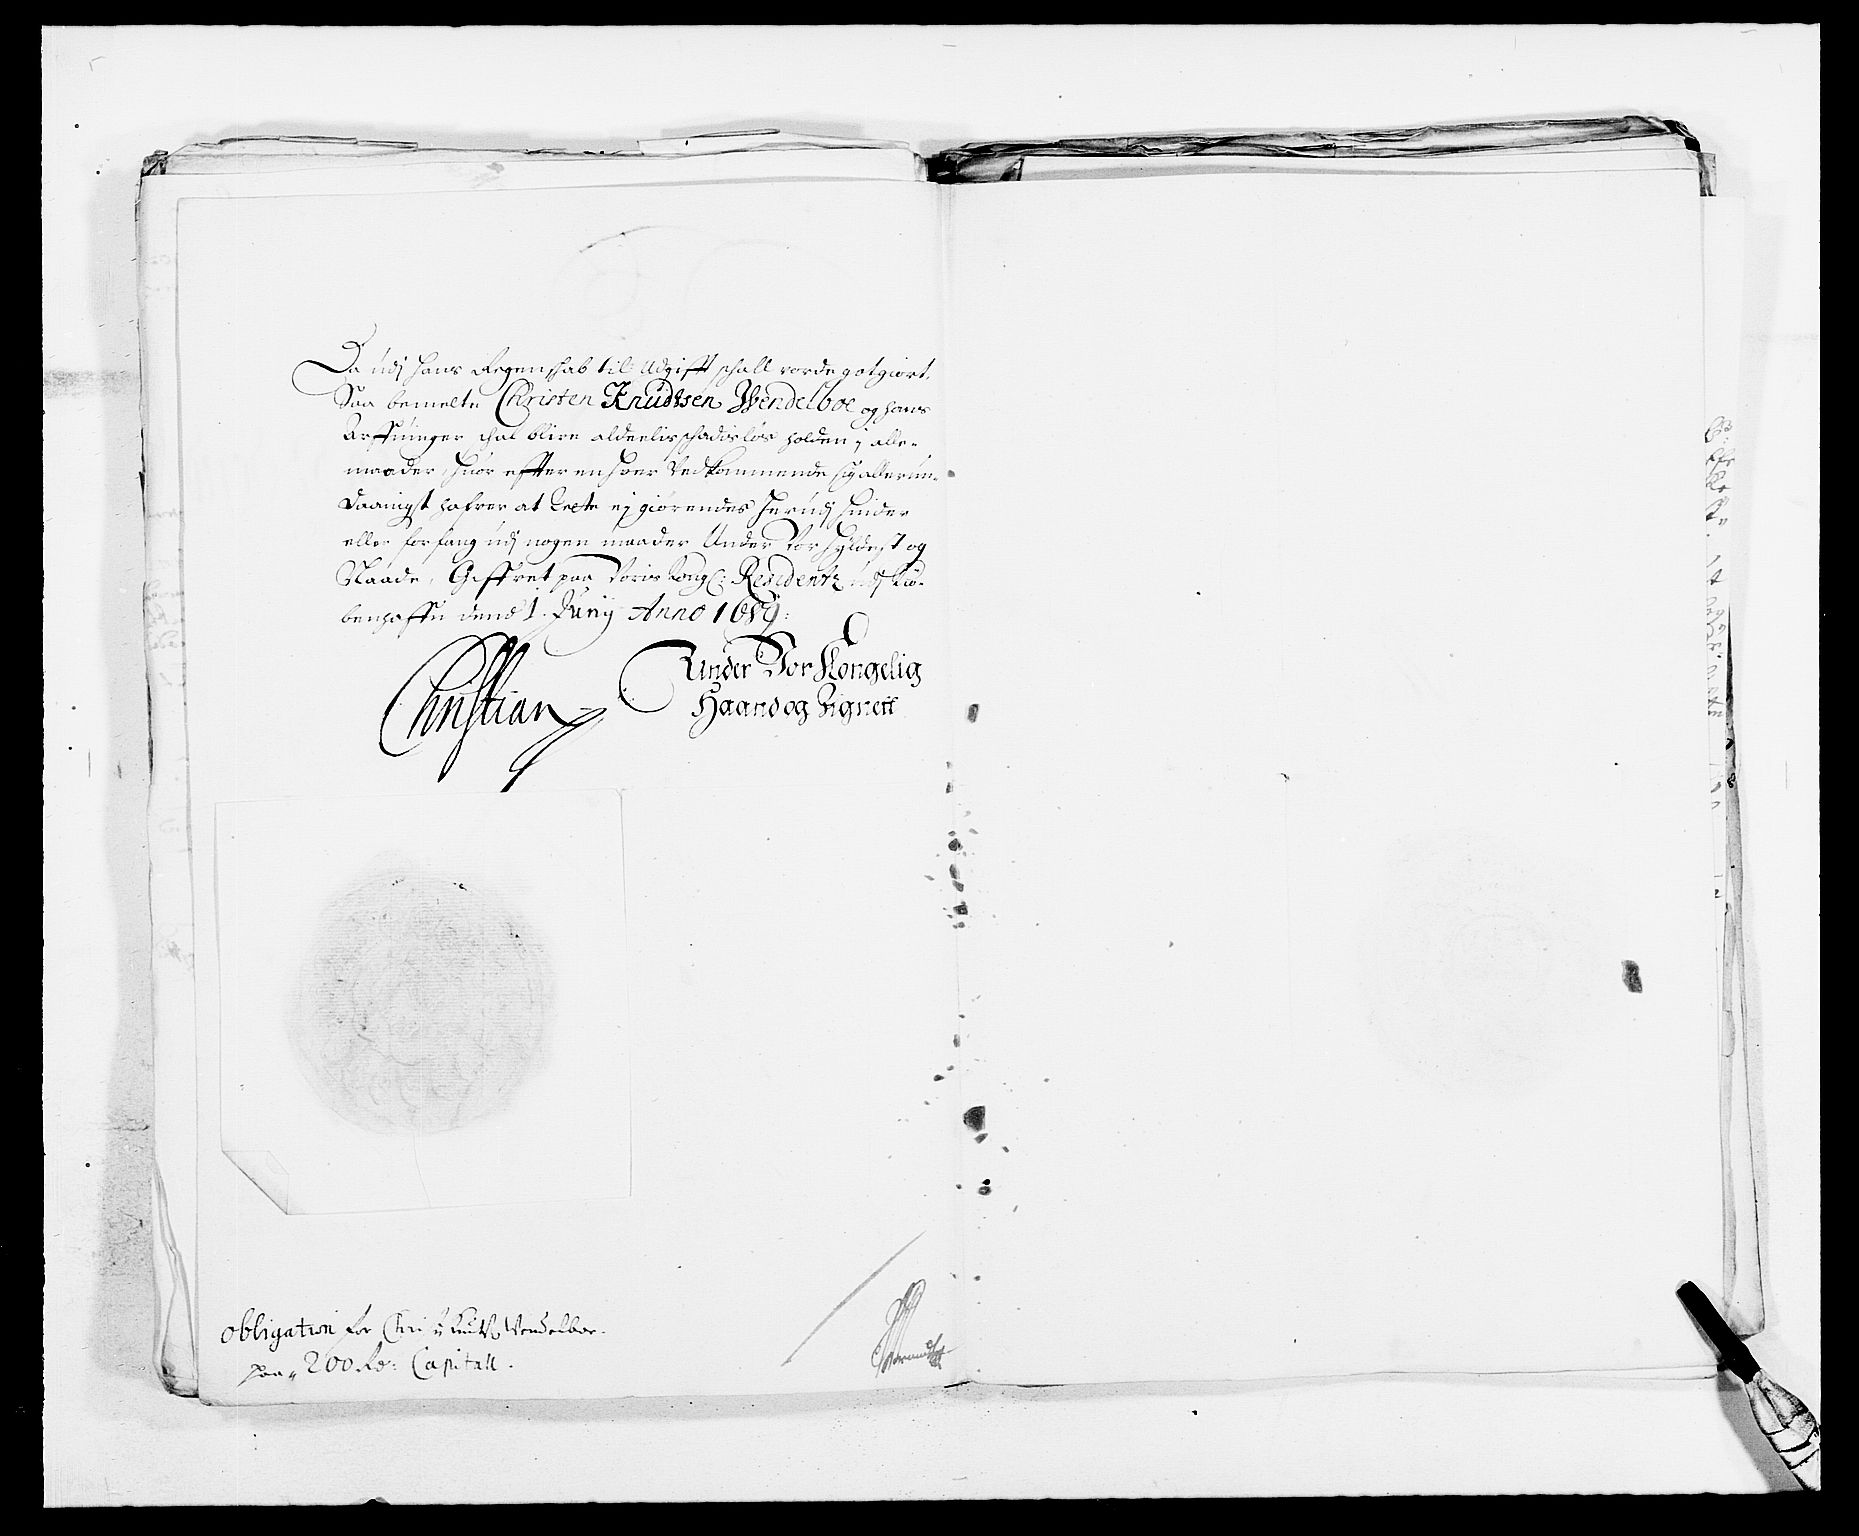 Da udj hans Regenschab til Udgifft schall vorde gotgiort,
Saa bemelte Christen Knudtsen Wendelboe og hans
Arffuinger schal blive aldeelis schadisløs holden j alle
maader, huor effter en hver Vedkommende sig allerun-
daanigst hafver at rette ej giørendes herudj hinder
eller forfang udj nogen maader Under Vor hyldest og
Naade, Gifvet paa Voris Kongl: Residentz udj Kiø-
benhaffn dend 1. Junij Anno 1689:
Under Vor Kongelig
Haand og Signett
Christian
obligation for Knudtz Wendelboe.
paa 200 Rd: Capitall.